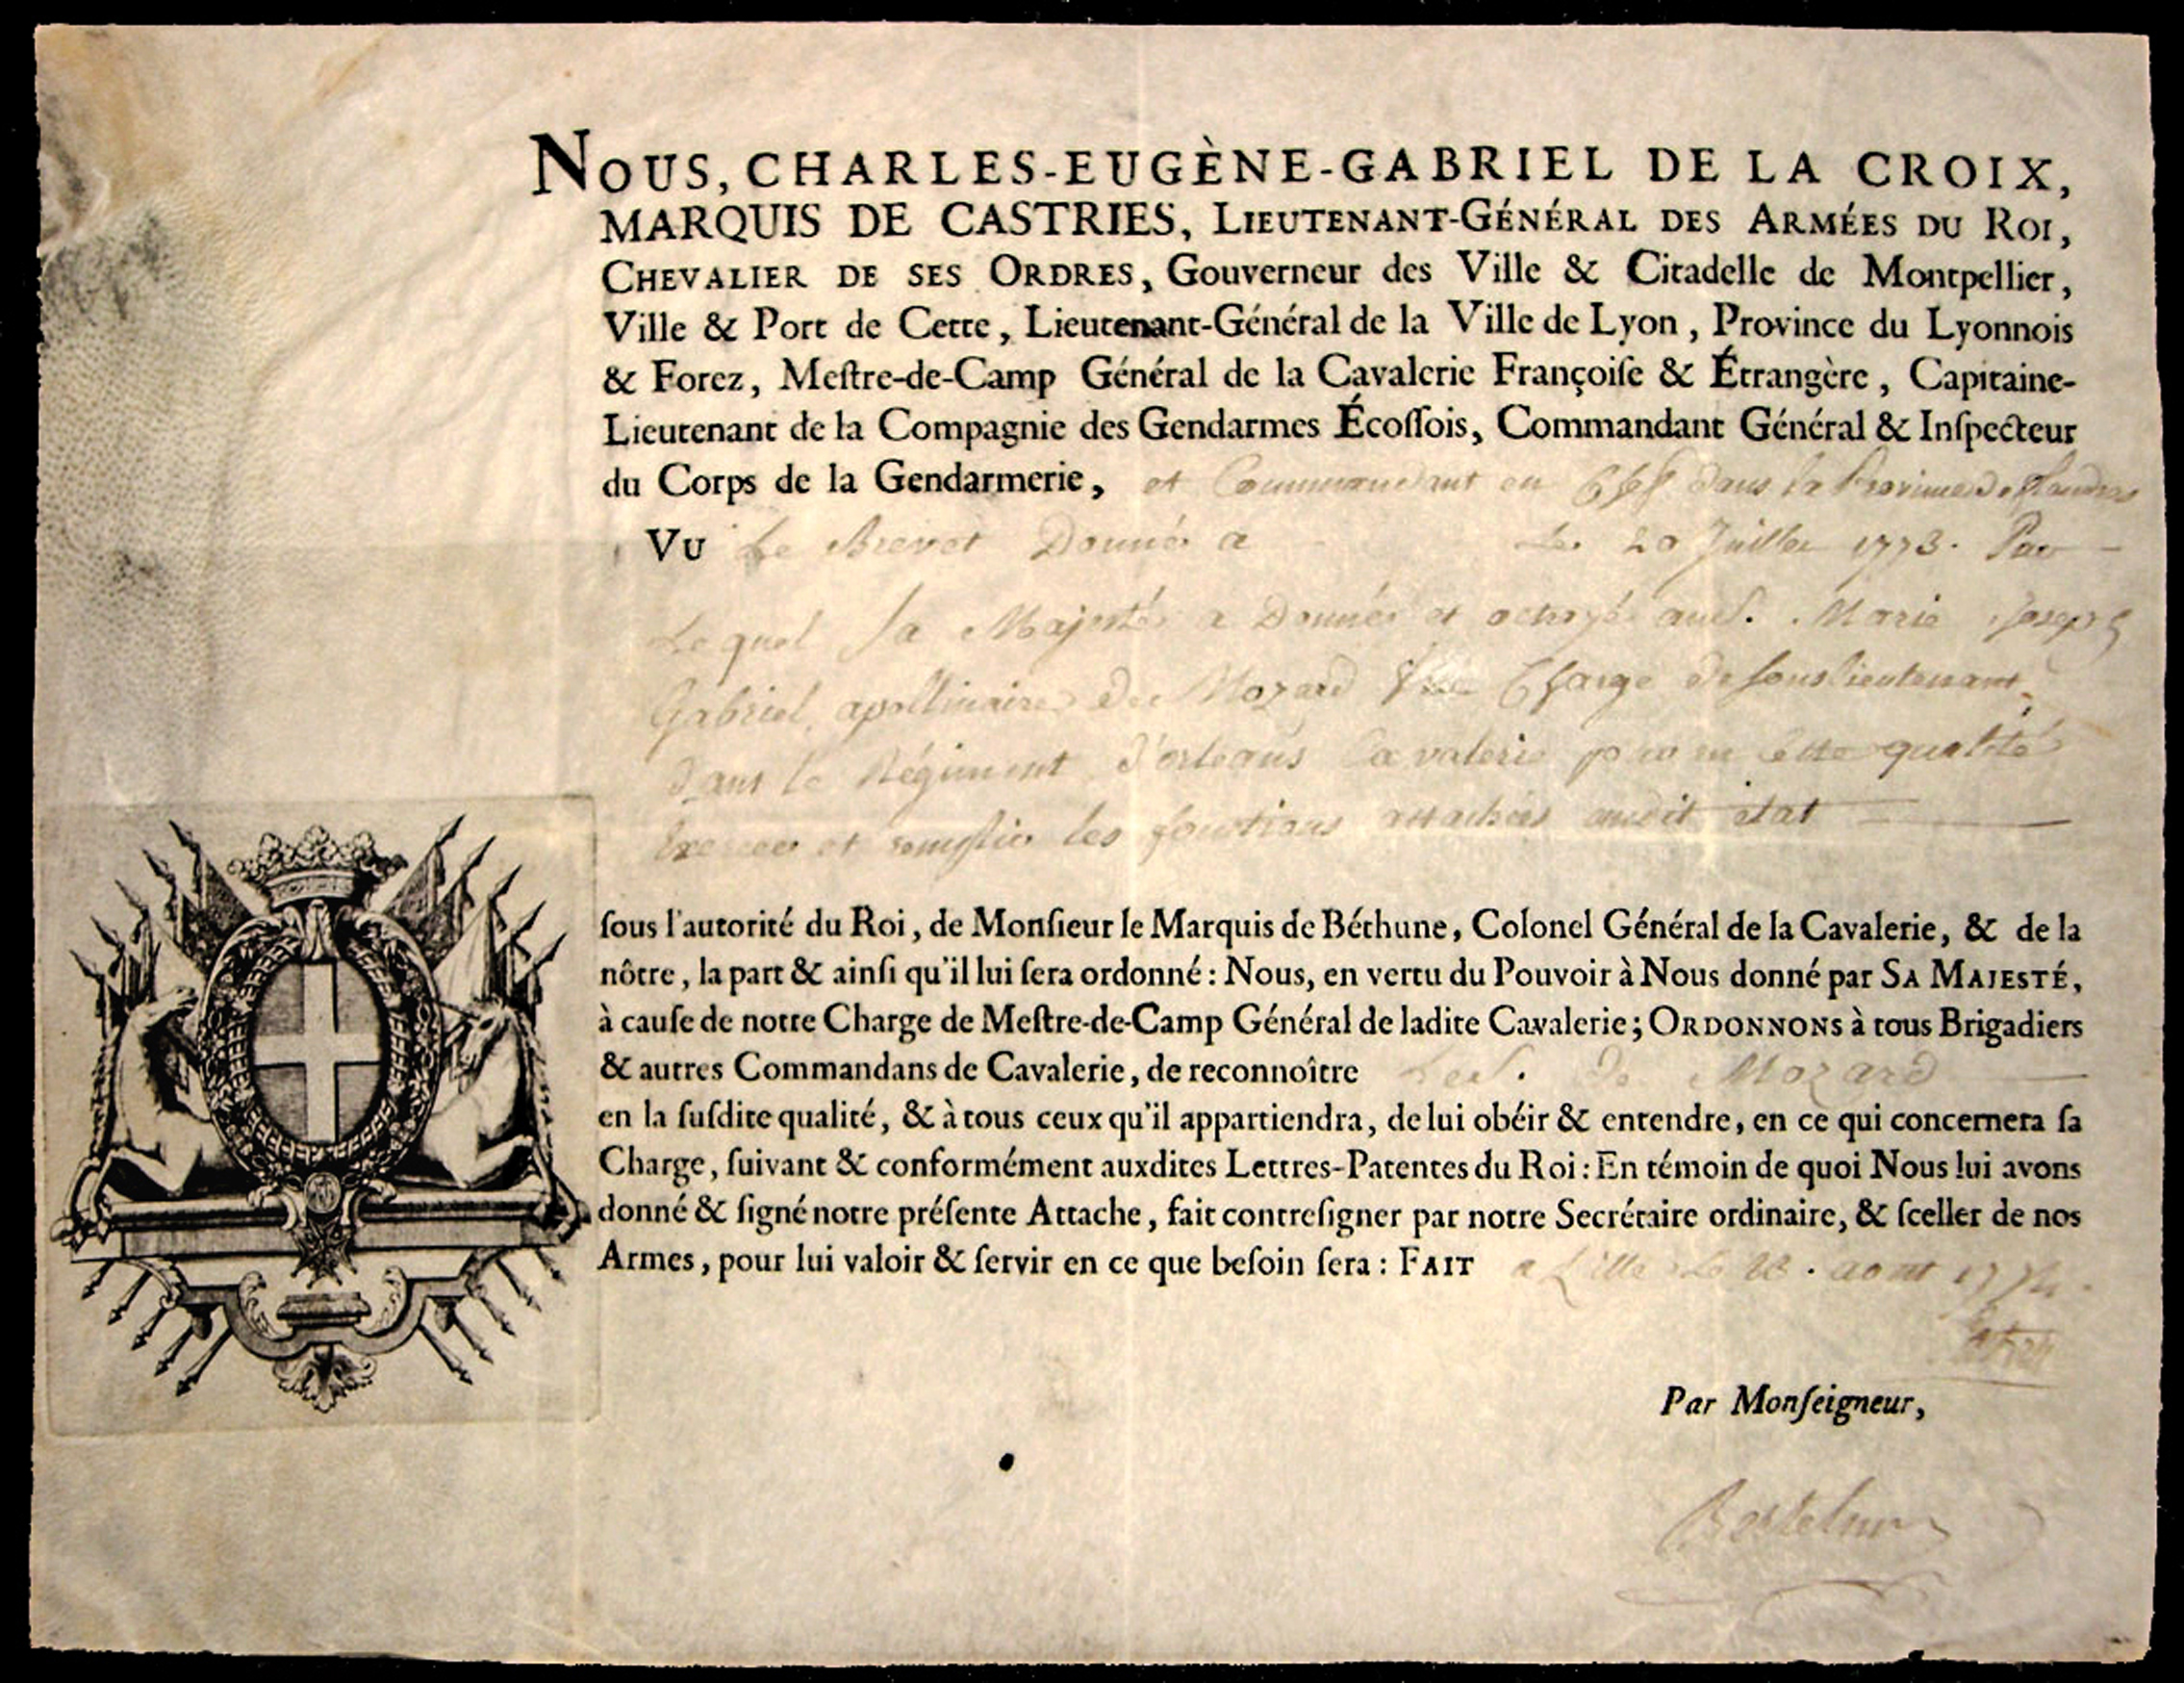 NOUS, CHARLES-EUGÈNE-GABRIEL DE LA CROIX,
MARQUIS DE CASTRIES, LIEUTENANT-GÉNÉRAL DES ARMÉES DU ROI,
CHEVALIER DE SES ORDRES, Gouverneur des Ville & Citadelle de Montpellier,
Ville & Port de Cette, Lieutenant-Général de la Ville de Lyon, Province du Lyonnois
& Forez, Meſtre-de-Camp Général de la Cavalerie Françoiſe & Étrangère, Capitaine-
Lieutenant de la Compagnie des Gendarmes Écoſſois, Commandant Général & Inſpecteur
du Corps de la Gendarmerie, et Commandant en Chef dans la Province de flandres
VU Le Brevet Donné a Le 20 Juillet 1773. Par
Lequel Sa Majesté a Donné et octroyé au S. Marie Joseph
Gabriel apollinaire de Mozard Charge de souslieutenant
dans le Régiment d'orleans Cavalerie pour en cette qualité
Exercer et remplir les fonctions attachées audit état
ſous l'autorité du Roi, de Monſieur le Marquis de Béthune, Colonel Général de la Cavalerie, & de la
nôtre, la part & ainſi qu'il lui ſera ordonné : Nous, en vertu du Pouvoir à Nous donné par SA MAJESTÉ,
à cauſe de notre Charge de Meſtre-de-Camp Général de ladite Cavalerie; ORDONNONS à tous Brigadiers
& autres Commandans de Cavalerie, de reconnoître Le S. de Mozard
en la ſuſdite qualité, & à tous ceux qu'il appartiendra, de lui obéir & entendre, en ce qui concernera ſa
Charge, ſuivant & conformément auxdites Lettres-Patentes du Roi : En témoin de quoi Nous lui avons
donné & ſigné notre préſente Attache, fait contreſigner par notre Secrétaire ordinaire, & ſceller de nos
Armes, pour lui valoir & ſervir en ce que beſoin ſera : FAIT a Lille Le aout
Par Monſeigneur,